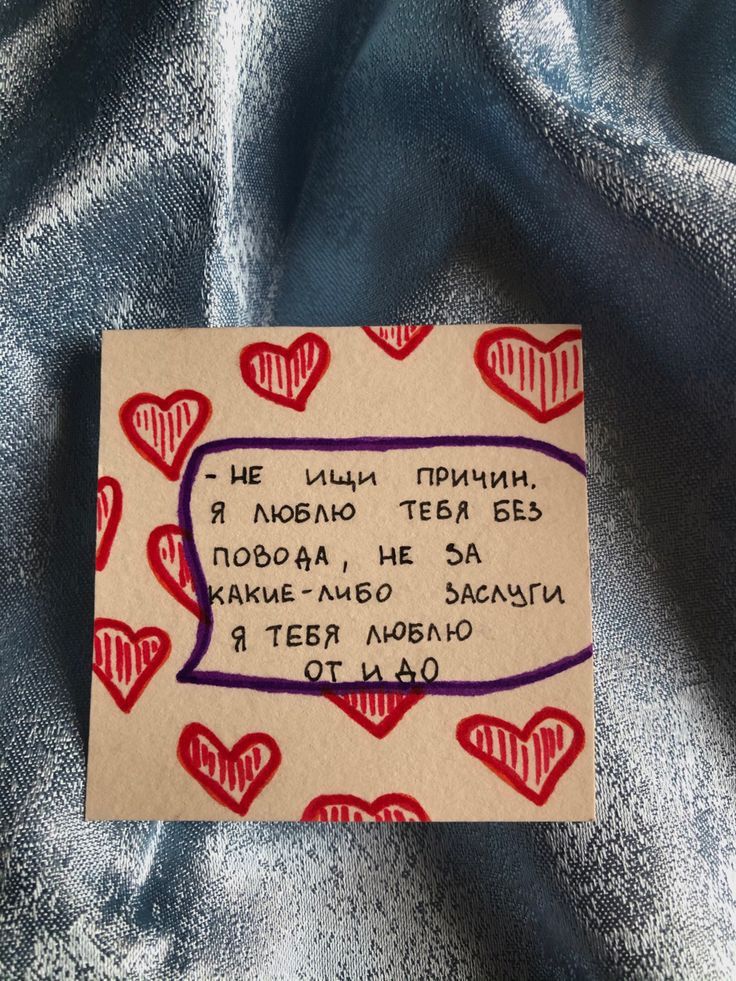 - НЕ ИЩИ ПРИЧИН.
Я ЛЮБЛЮ ТЕБЯ БЕЗ
ПОВОДА, НЕ ЗА
КАКИЕ-ЛИБО ЗАСЛУГИ
Я ТЕБЯ ЛЮБЛЮ
ОТ И ДО